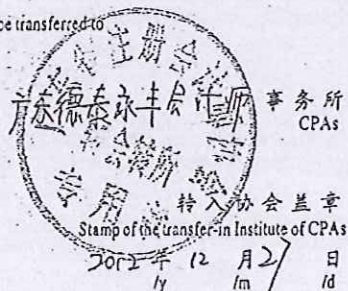 be transferred to
广东德泰永丰会计师 事务所
CPAs
转所专用章
转入协会盖章
Stamp of the transfer-in Institute of CPAs
2012 年 12 月 21 日
/y /m /d